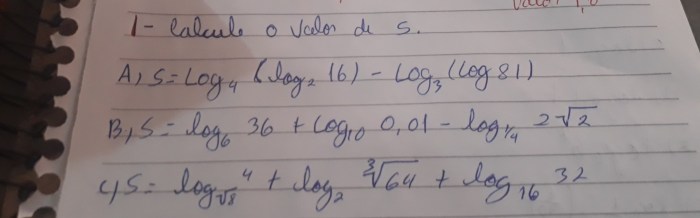 1- Calcule o valor de S.
A) S = Log₄ (log₂ 16) - Log₃ (Log 81)
B) S = log₆ 36 + Log₁₀ 0,01 - log_¼ 2√2
C) S = log_√8 4 + log₂ ∛64 + log₁₆ 32